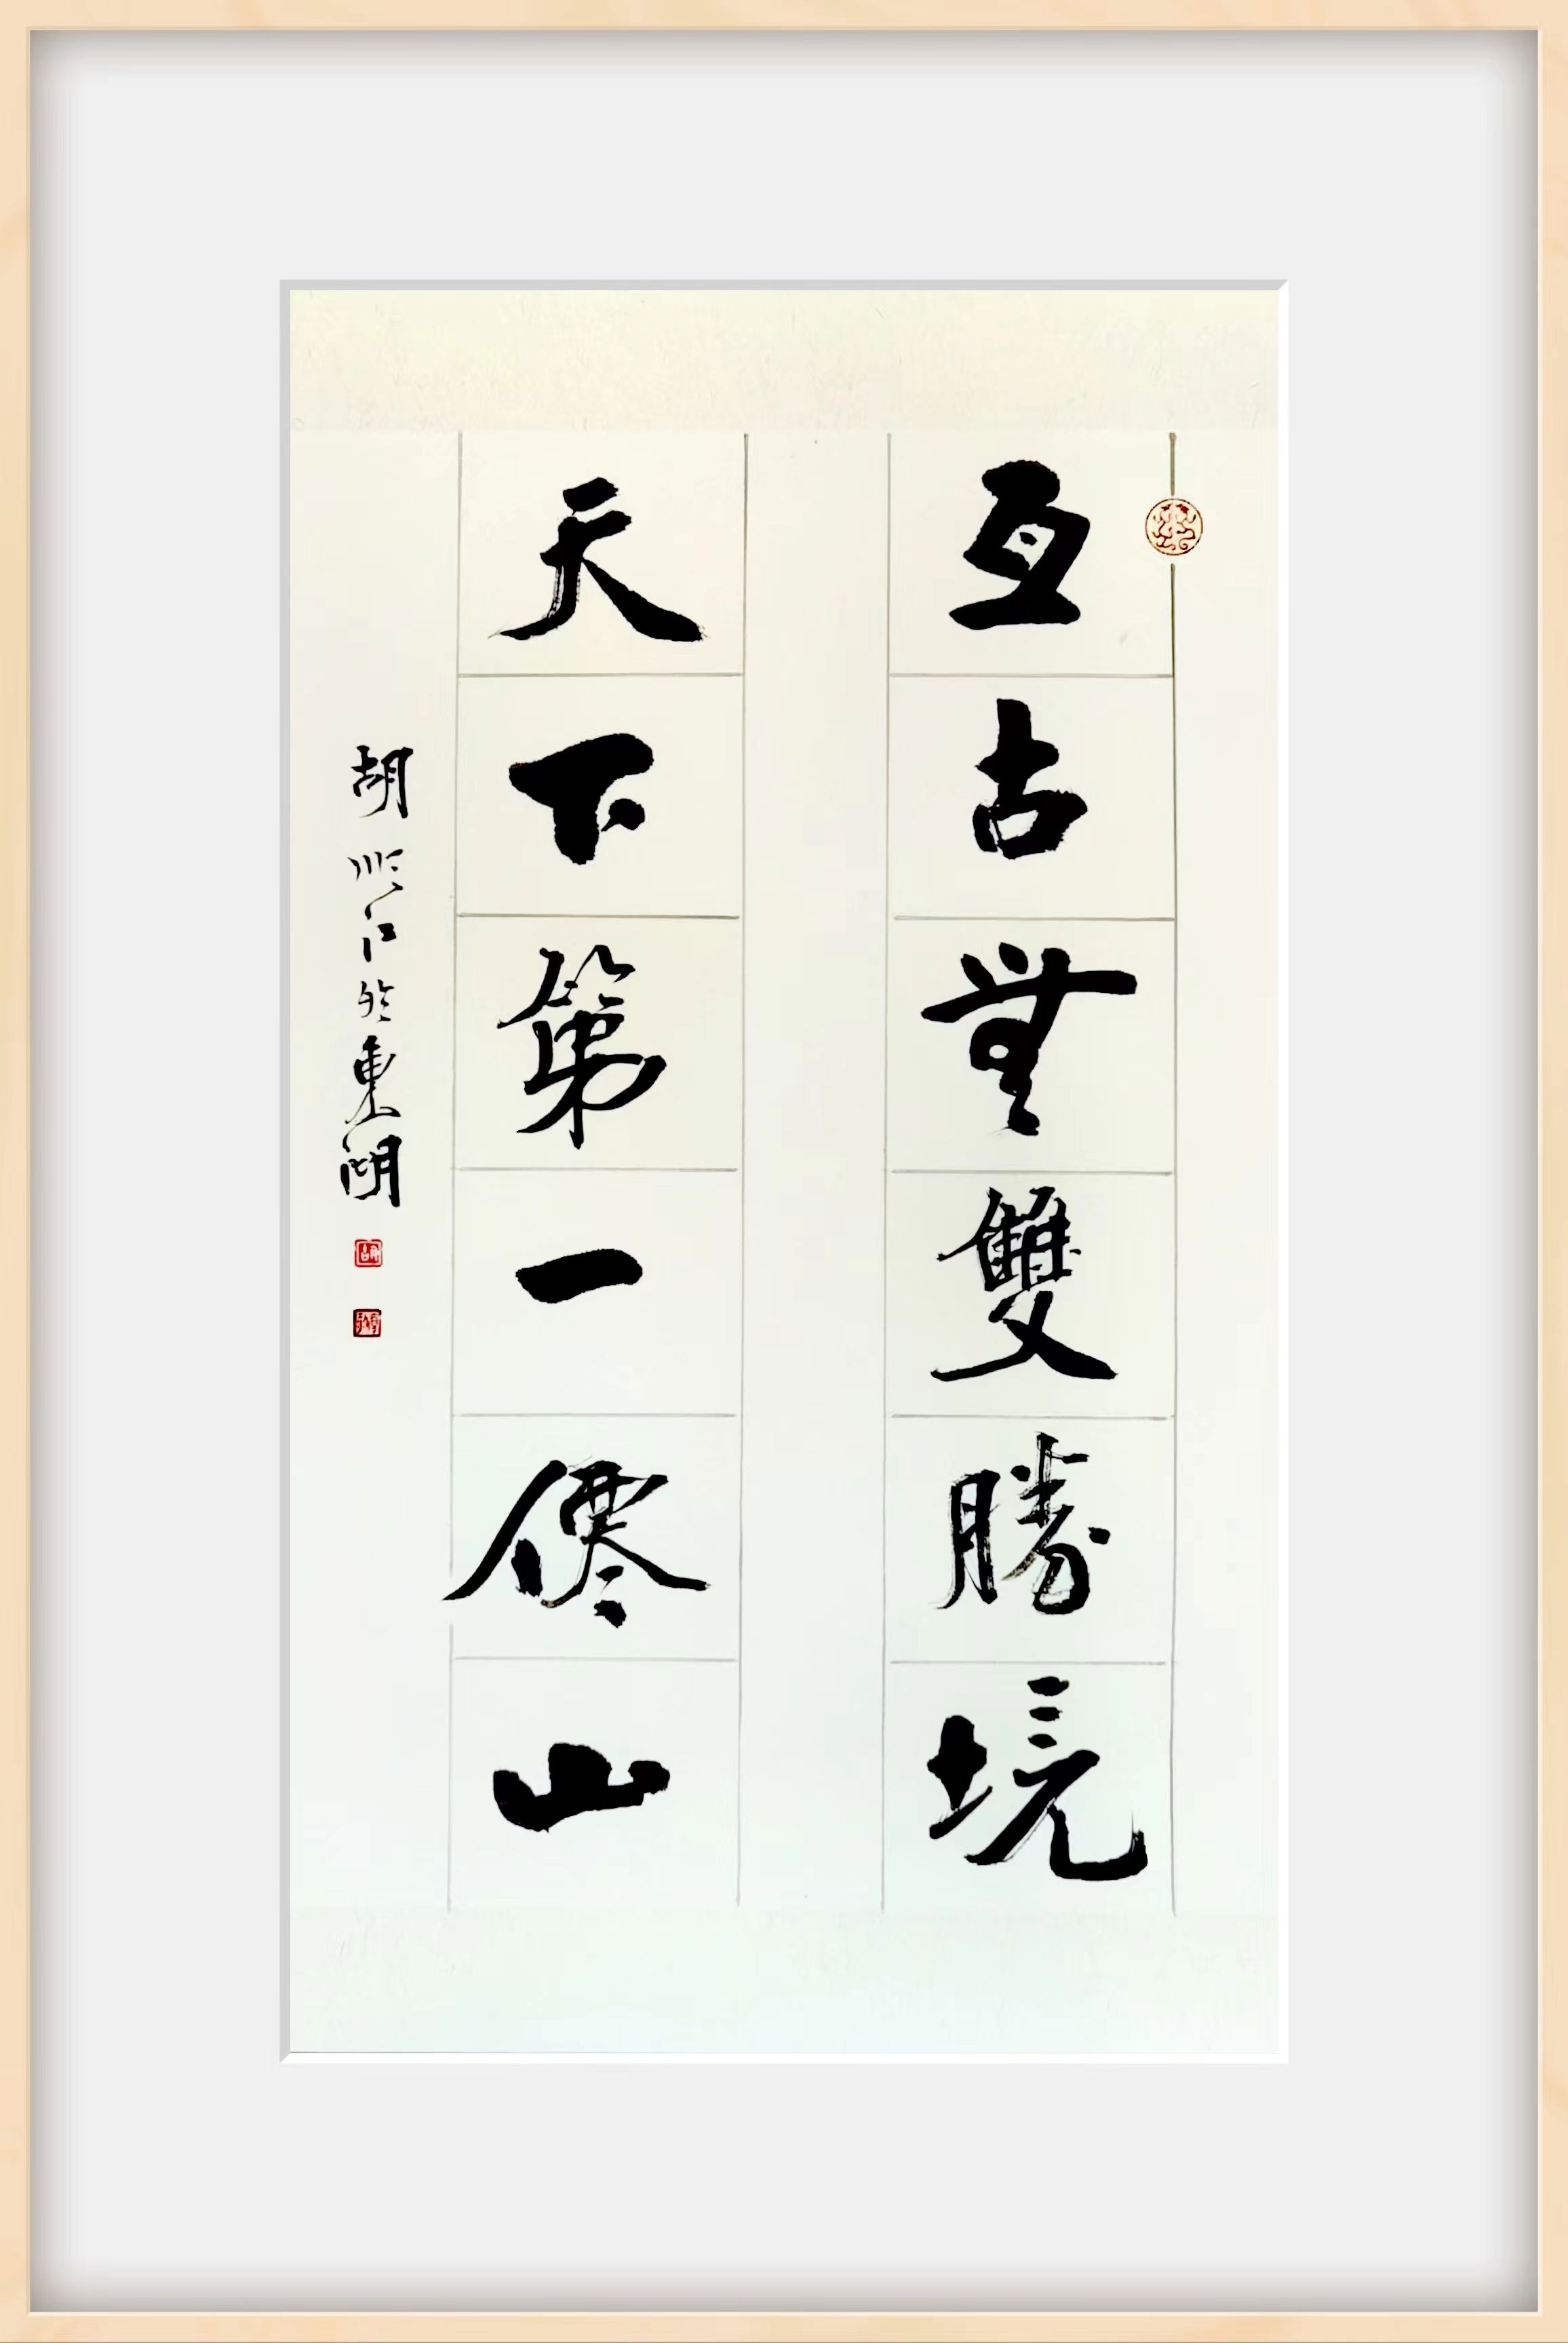 亙古無雙勝境
天下第一僊山
胡順江於東湖